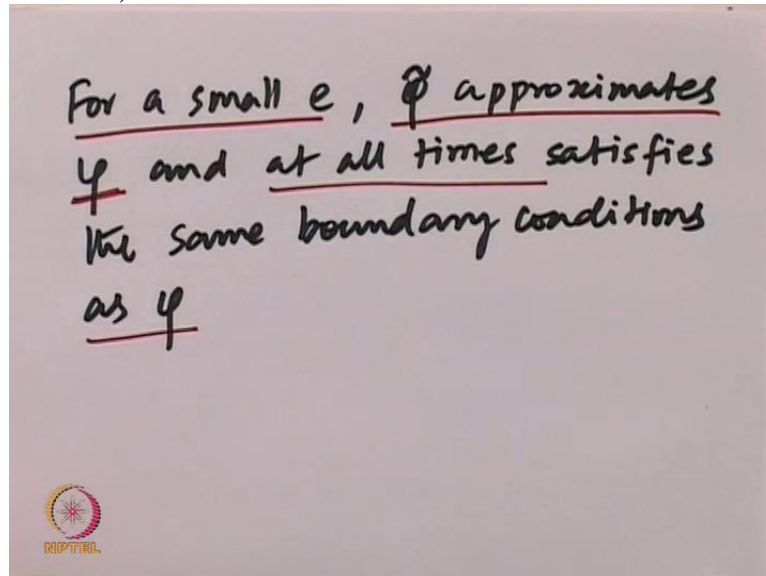 For a small e, φ̃ approximates
φ and at all times satisfies
the same boundary conditions
as φ
NPTEL